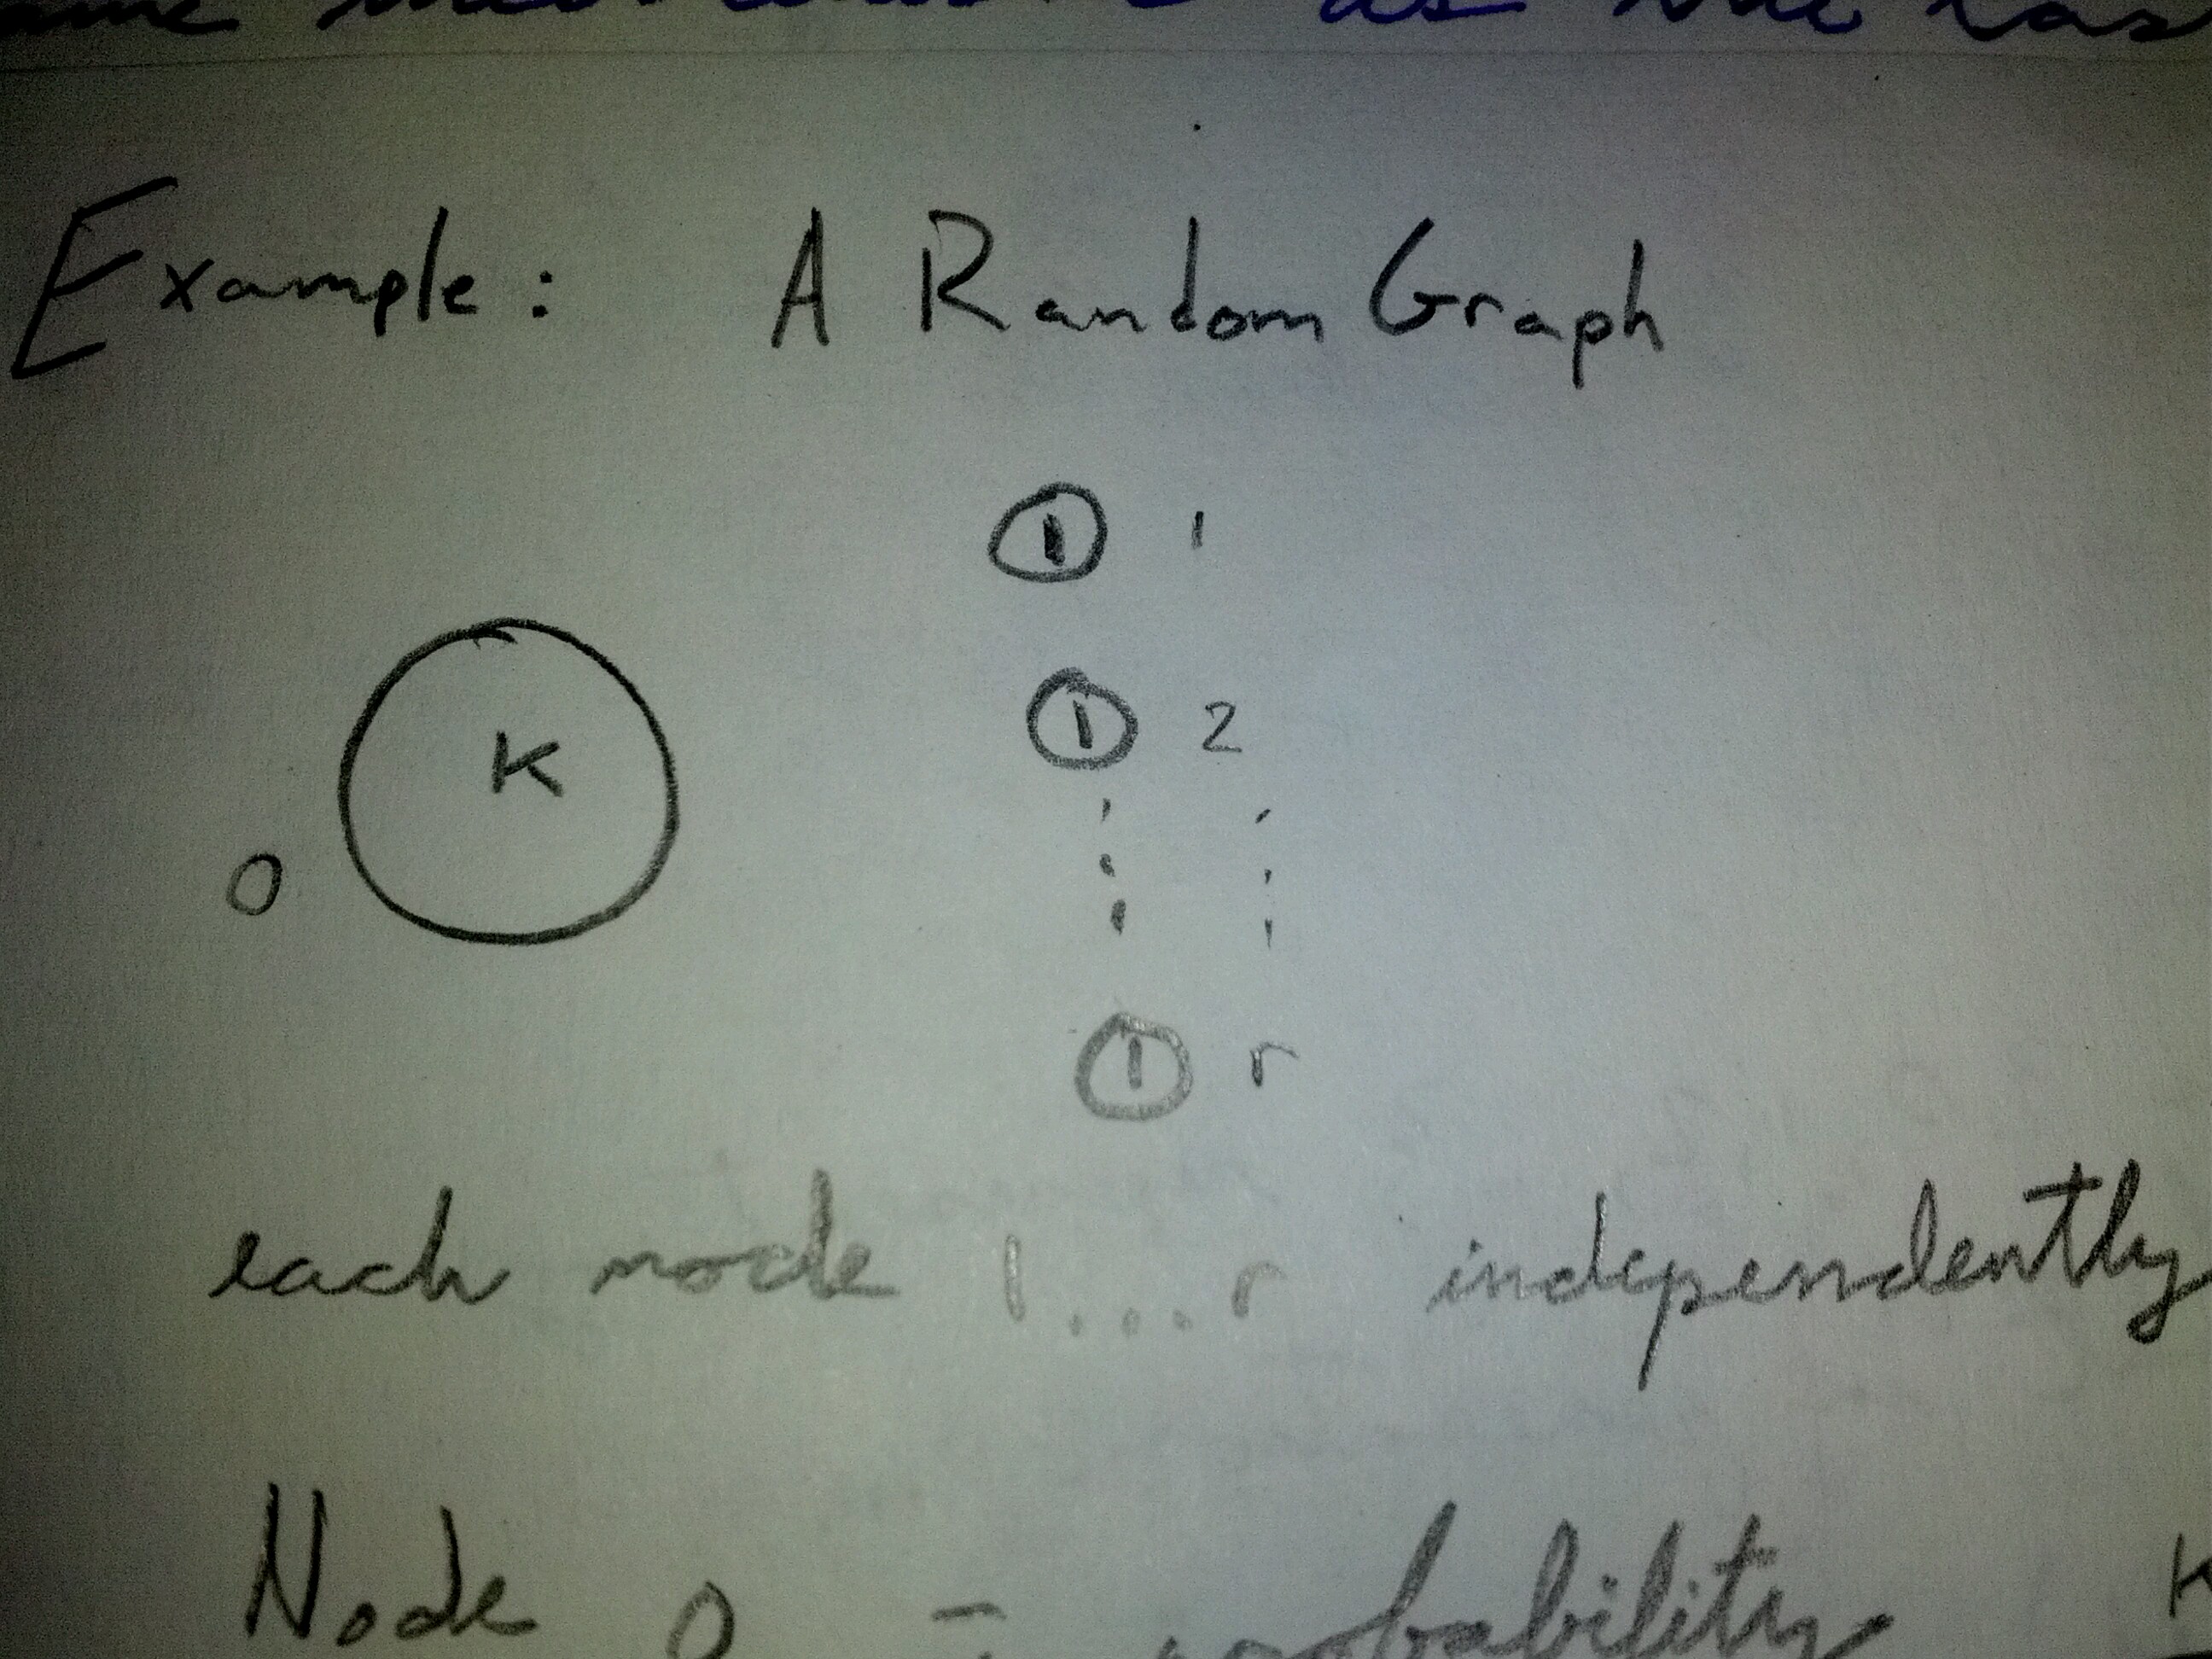 as the las
Example: A Random Graph
1 1
K
1 2
0
1 r
each node 1....r independently
Node 0 - probability K